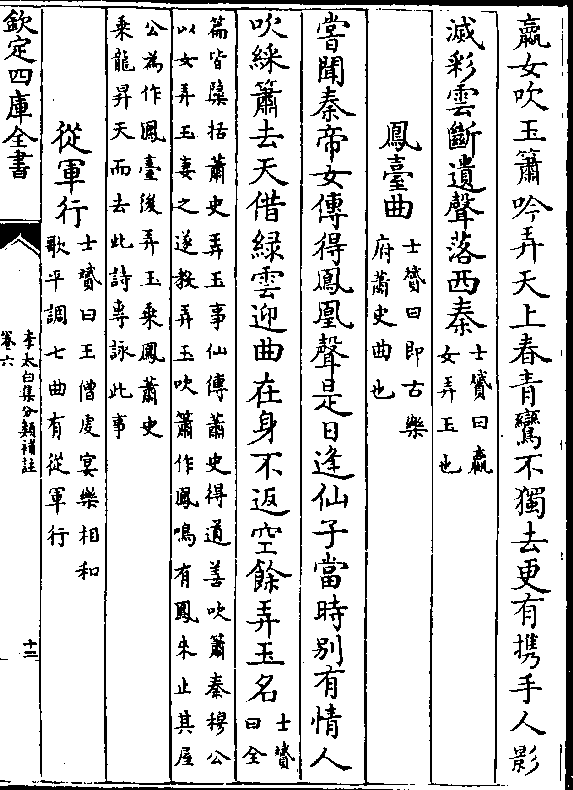 嬴女吹玉簫吟弄天上春青鸞不獨去更有携手人影
滅彩雲斷遺聲落西秦士贇曰嬴
女弄玉也
鳳臺曲士贇曰即古樂
府蕭史曲也
嘗聞秦帝女傳得鳳凰聲是日逢仙子當時别有情人
吹綵簫去天借緑雲迎曲在身不返空餘弄玉名士贇
曰全
篇皆檃括蕭史弄玉事仙傳蕭史得道善吹簫秦穆公
以女弄玉妻之遂教弄玉吹簫作鳳鳴有鳳来止其屋
公為作鳳臺後弄玉乘鳳蕭史
乘龍昇天而去此詩專詠此事
從軍行士贇曰王僧虔宴樂相和
歌平調七曲有從軍行
欽定四庫全書
李太白集分類補註
卷六
十二